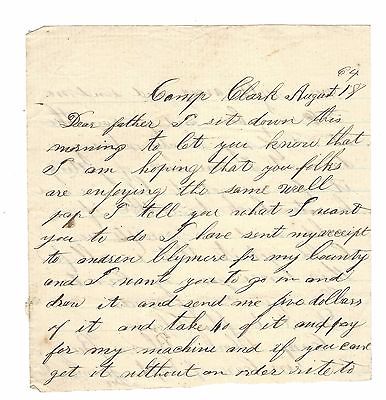 64
Camp Clark August 18
Dear father I sit down this
morning to let you know that
I am hoping that you folks
are enjoying the same well
pap I tell you what I want
you to do I have sent my receipt
to andrew Clymore for my bounty
and I want you to go in and
draw it and send me five dollars
of it and take 40 of it and pay
for my machine and if you cant
get it without an order write to